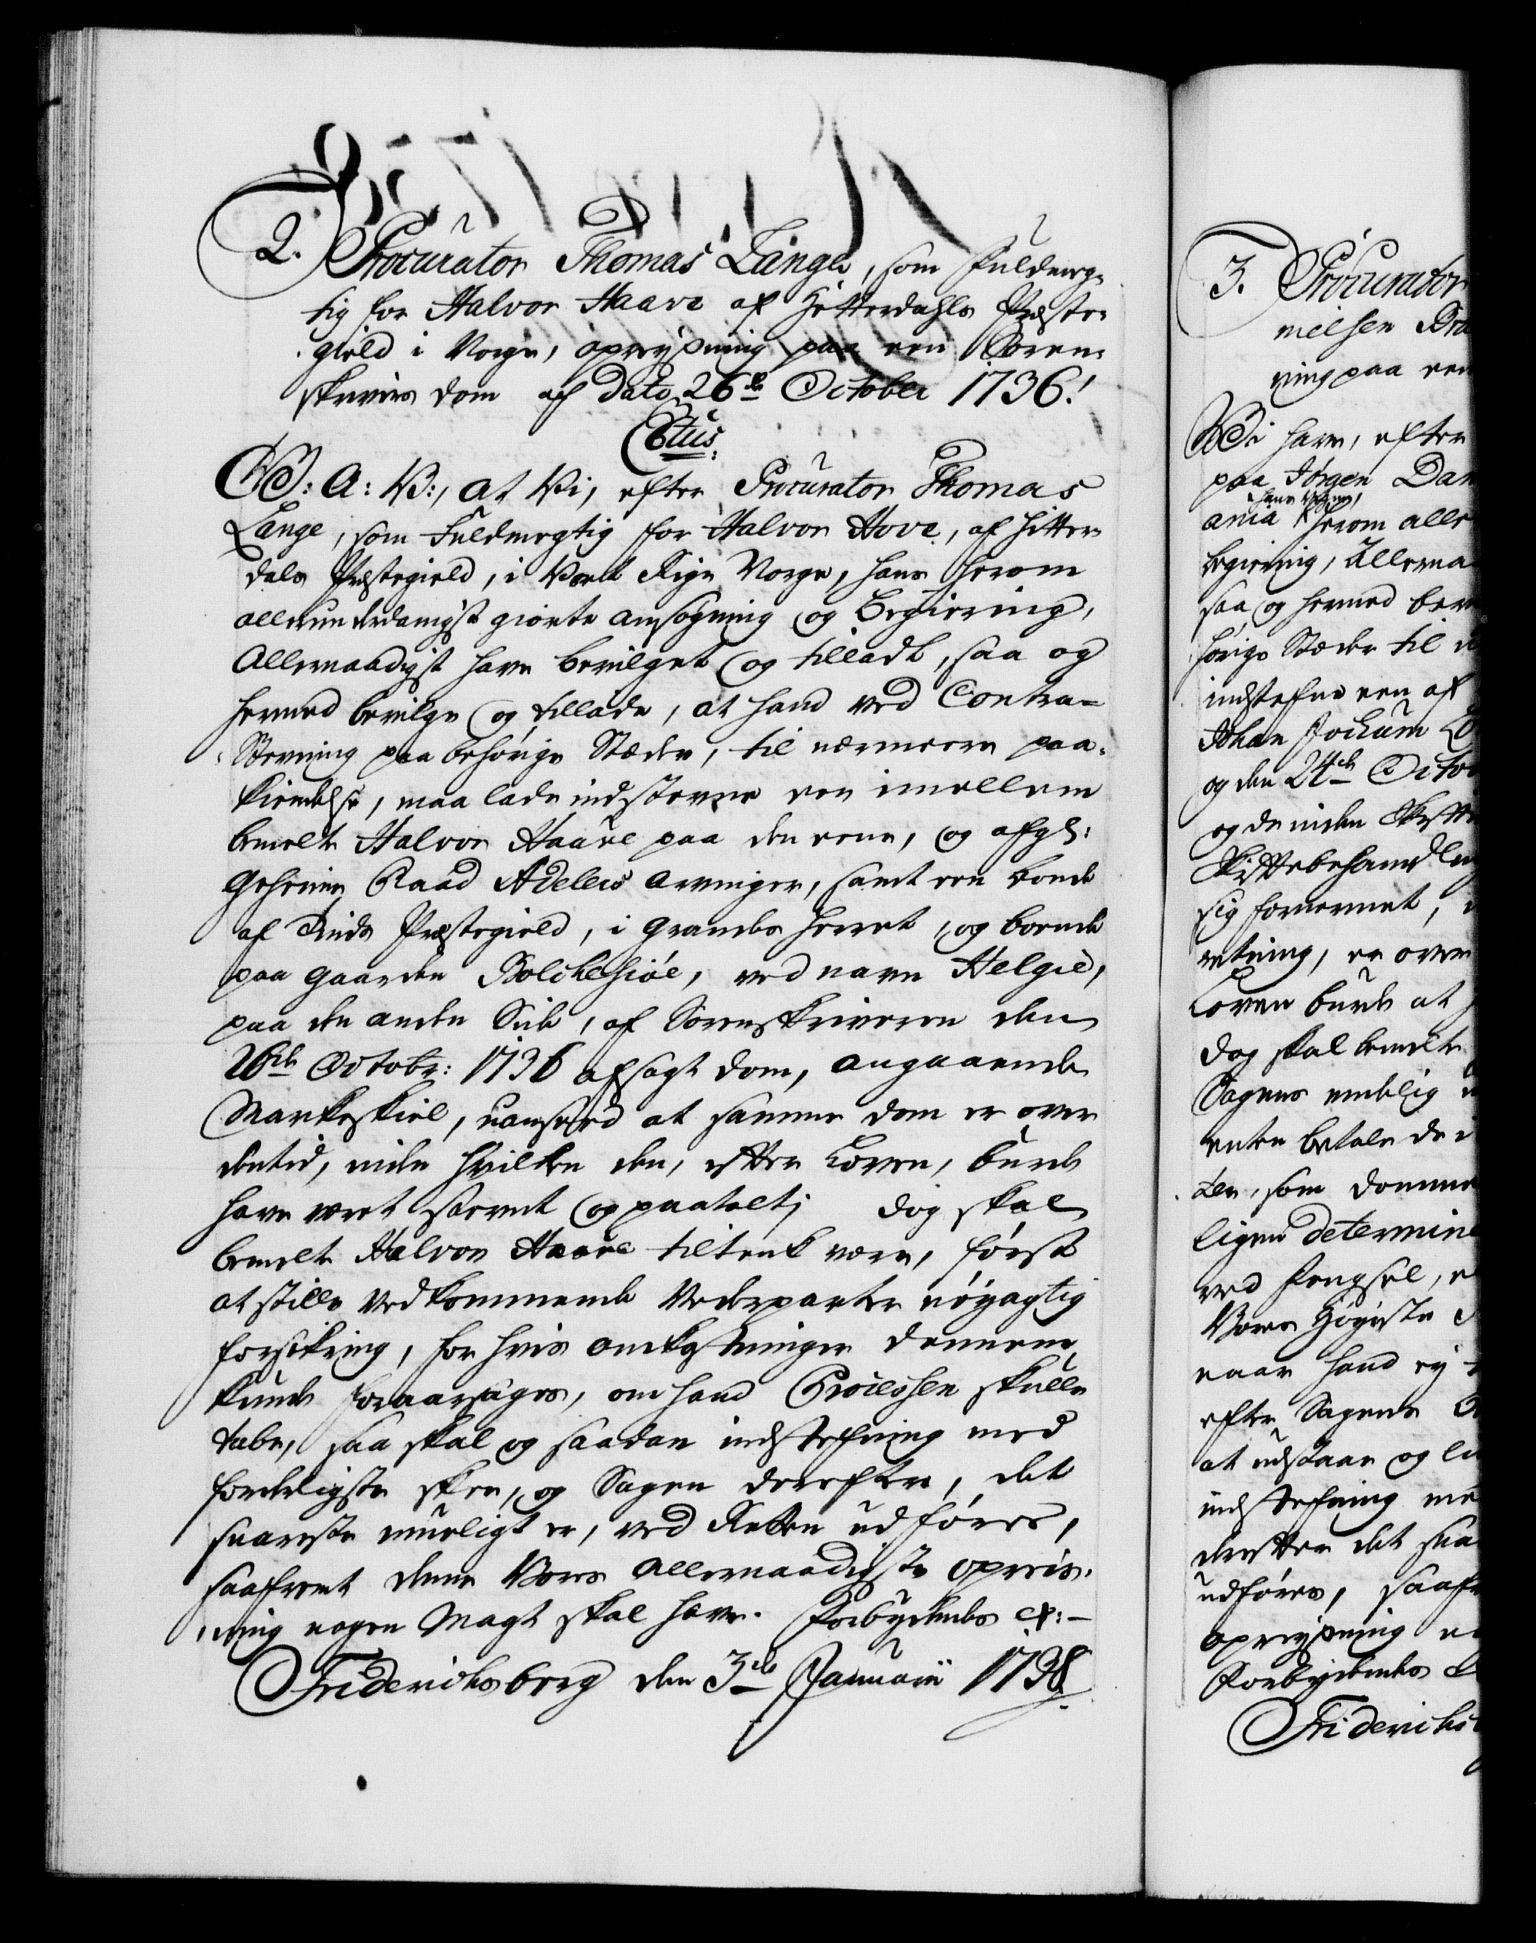 2. Procurator Thomas Lange, som Fuldmæg-
tig for Halvor Haave af Hitterdahls Præste-
gield i Norge, opreysning paa een Soren-
skrivers dom af dato 26de October 1736!
C6tus.
G: A: V:, at Vi, efter Procurator Thomas
Lange, som Fuldmegtig for Halvor Hove, af Hitter-
dals Præstegield, i Vort Rige Norge, hans herom
allerunderdanigst giorte ansøgning og begiering,
Allernaadigst have bevilget og tilladt, saa og
hermed bevilge og tillade, at hand ved Contra-
Stevning paa behørige Stæder, til nærmeere paa-
kiendelse, maa lade indstevne een imellem
bemelte Halvor Haave paa den eene, og afgl:
Geheime Raad Adelers Arvinger, samt een bonde
af Tinds Præstegield, i Gransherret, og boende
paa gaarden Bolchesiøe, ved navn Helgie,
paa den anden Side, af Sorenskriveren den
26de Octobr: 1736 afsagt dom, angaaende
Markeskiel, uanseed at samme dom er over
den tid, inden hvilken den, efter Loven, burde
have været stevnt og paatalt; dog skal
bemelte Halvor Haave tiltenkt være, først
at stille vedkommende Vederparter nøyagtig
forsikring, for hvis omkostninger dennem
kunde foraarsages, om hand Processen skulle
tabe, saa skal og saadan indstefning med
forderligste skee, og Sagen derefter, det
snareste mueligt er, ved Retten udføres,
saafremt denne Vores allernaadigste opreis-
ning nogen Magt skal have. Forbydendes etc:-
Friderichsberg den 3de Januarii 1738.
3. Procurator
nielsen Bra
ning paa een
Vi have, efter
paa Jørgen Dan
hans Vegne,
ania herom aller
begiering, Allerna
saa og hermed bev
hørige Stæder til
indstefne een af
Johan Jochum
og den 24de Octo
og de inden Skifte
Skiftebehandling
sig fornermet,
retning, er over
Loven burde at
dog skal bemelte
Sagens endelig
enten betale de i
ter, som domme
ligen determine
ved fengsel,
Vores Høyeste
naar hand ey
efter Sagens
at udstaae og
indstefning me
derefter det sna
udføres, saafr
opreysning
Forbydendes
Friderichs